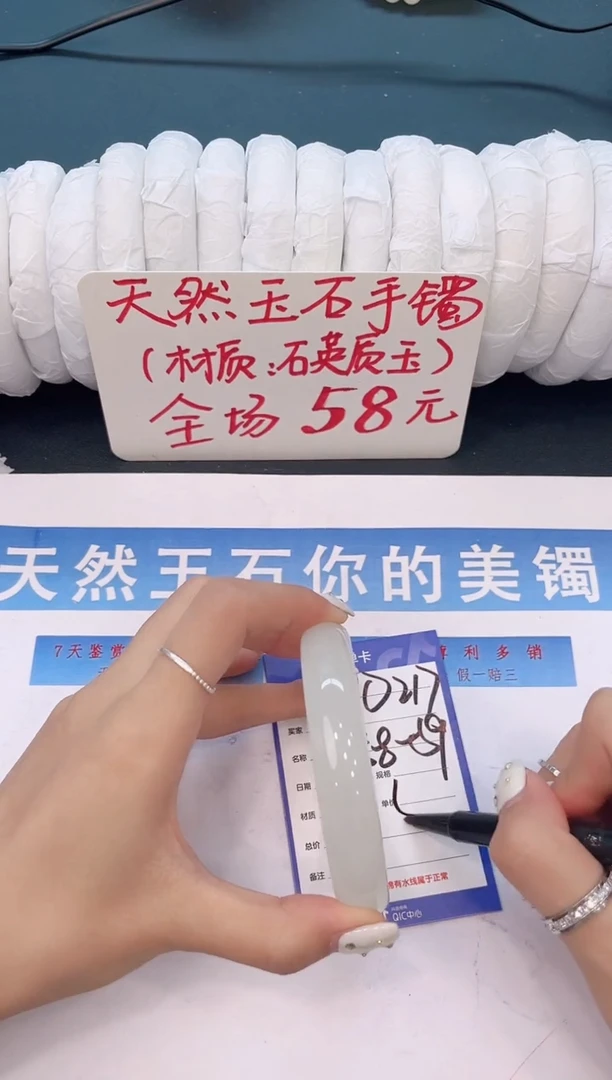 天然玉石手镯
（材质:石英质玉）
全场58元
天然玉石你的美镯
7天鉴赏
利多销
假一赔三
单卡
0217
买家
58-59
名称
规格
日期
单价
材质
总价
备注
有水线属于正常
QIC中心